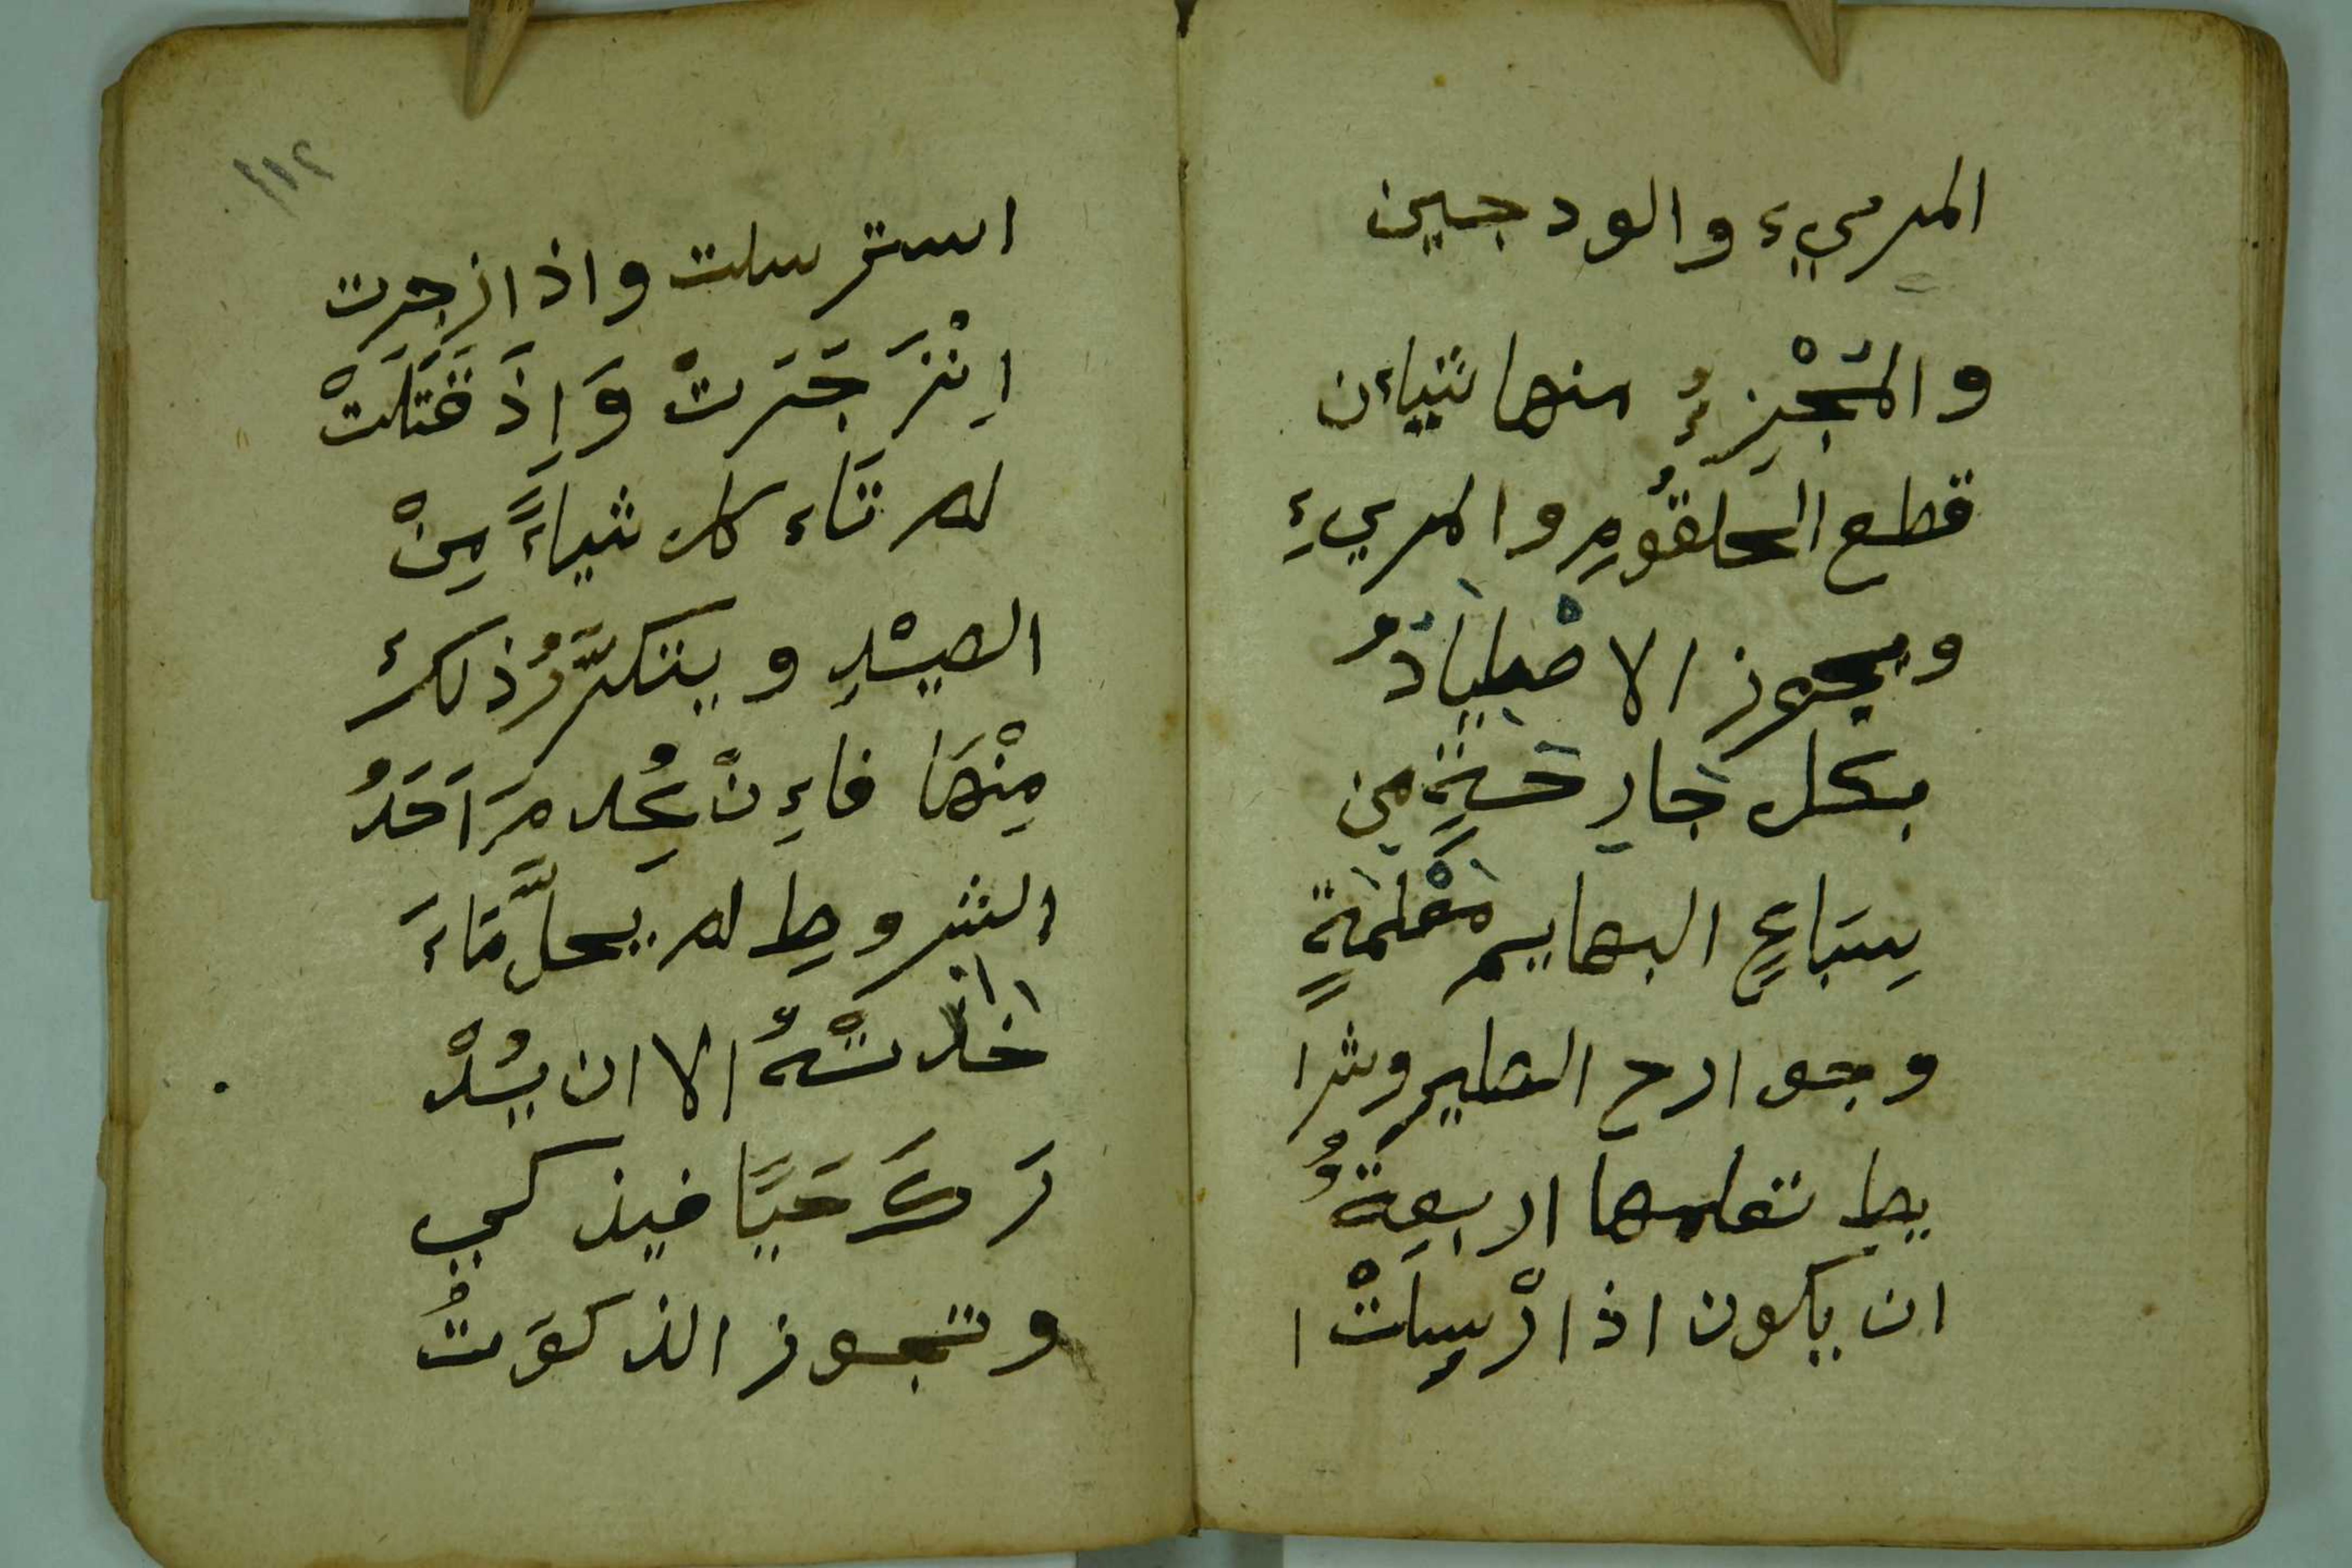 المريء والودجين
والمُجْزِءُ منها شيان
قطع الحلقُومِ والمريءِ
ويجوز الاصْطِيَادُ
بكل جَارِحَةٍ من
سِبَاعٍ البهايم مُعْلَمَةٍ
وجوارح الطير وشرا
يط تعلمها اربعةٌ
ان يكون اذا ارْسِلَتْ ا
١١٢
استرسلت واذا ازجرت
اِنْزَجَرَتْ وَاِذَ قَتَلَتْ
لم تَاء كل شياءً مِنْ
الصيْدِ ويتكرَّرُ ذلك
مِنْهَا فاءِنْ عُدِمَ اَحَدُ
الشروطِ لم يحلَّ مَاءَ
اخَذَتْهُ الا ان يُدْ
رَكَ حَيًا فيذكي
وتجوز الذكوَتُ